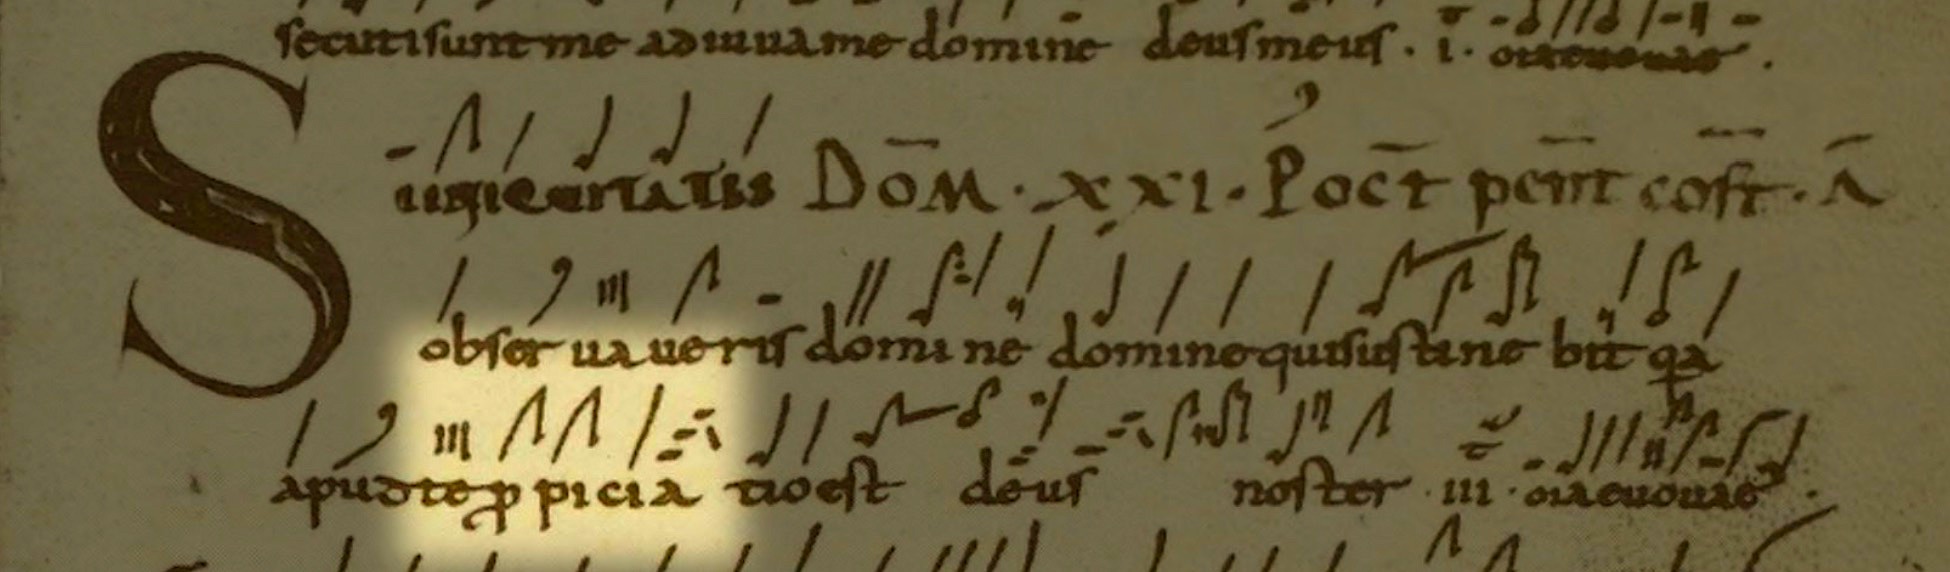 secuti sunt me adiuua me domine deus meus . i .
Dom̄ . xxi . Poct̄ pent̄ cost̄ . Ā
S i obseruaueris domine domine quis sustinebit qa
apud te ꝓpiciatio est deus noster . iii .